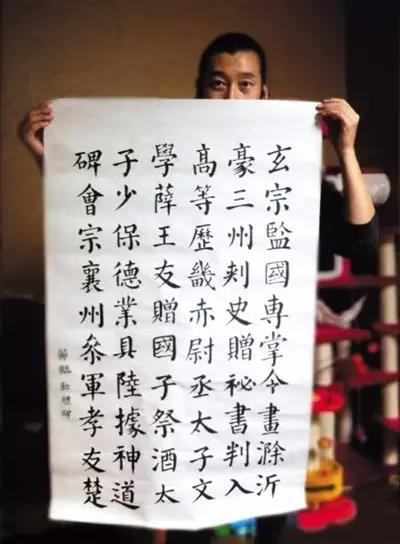 玄宗監國専掌令畫滁沂
豪三州刾史贈祕書判入
髙等歷畿赤尉丞太子文
學薛王友贈國子祭酒太
子少保德業具陸據神道
碑會宗襄州叅軍孝友楚
節臨勤禮碑